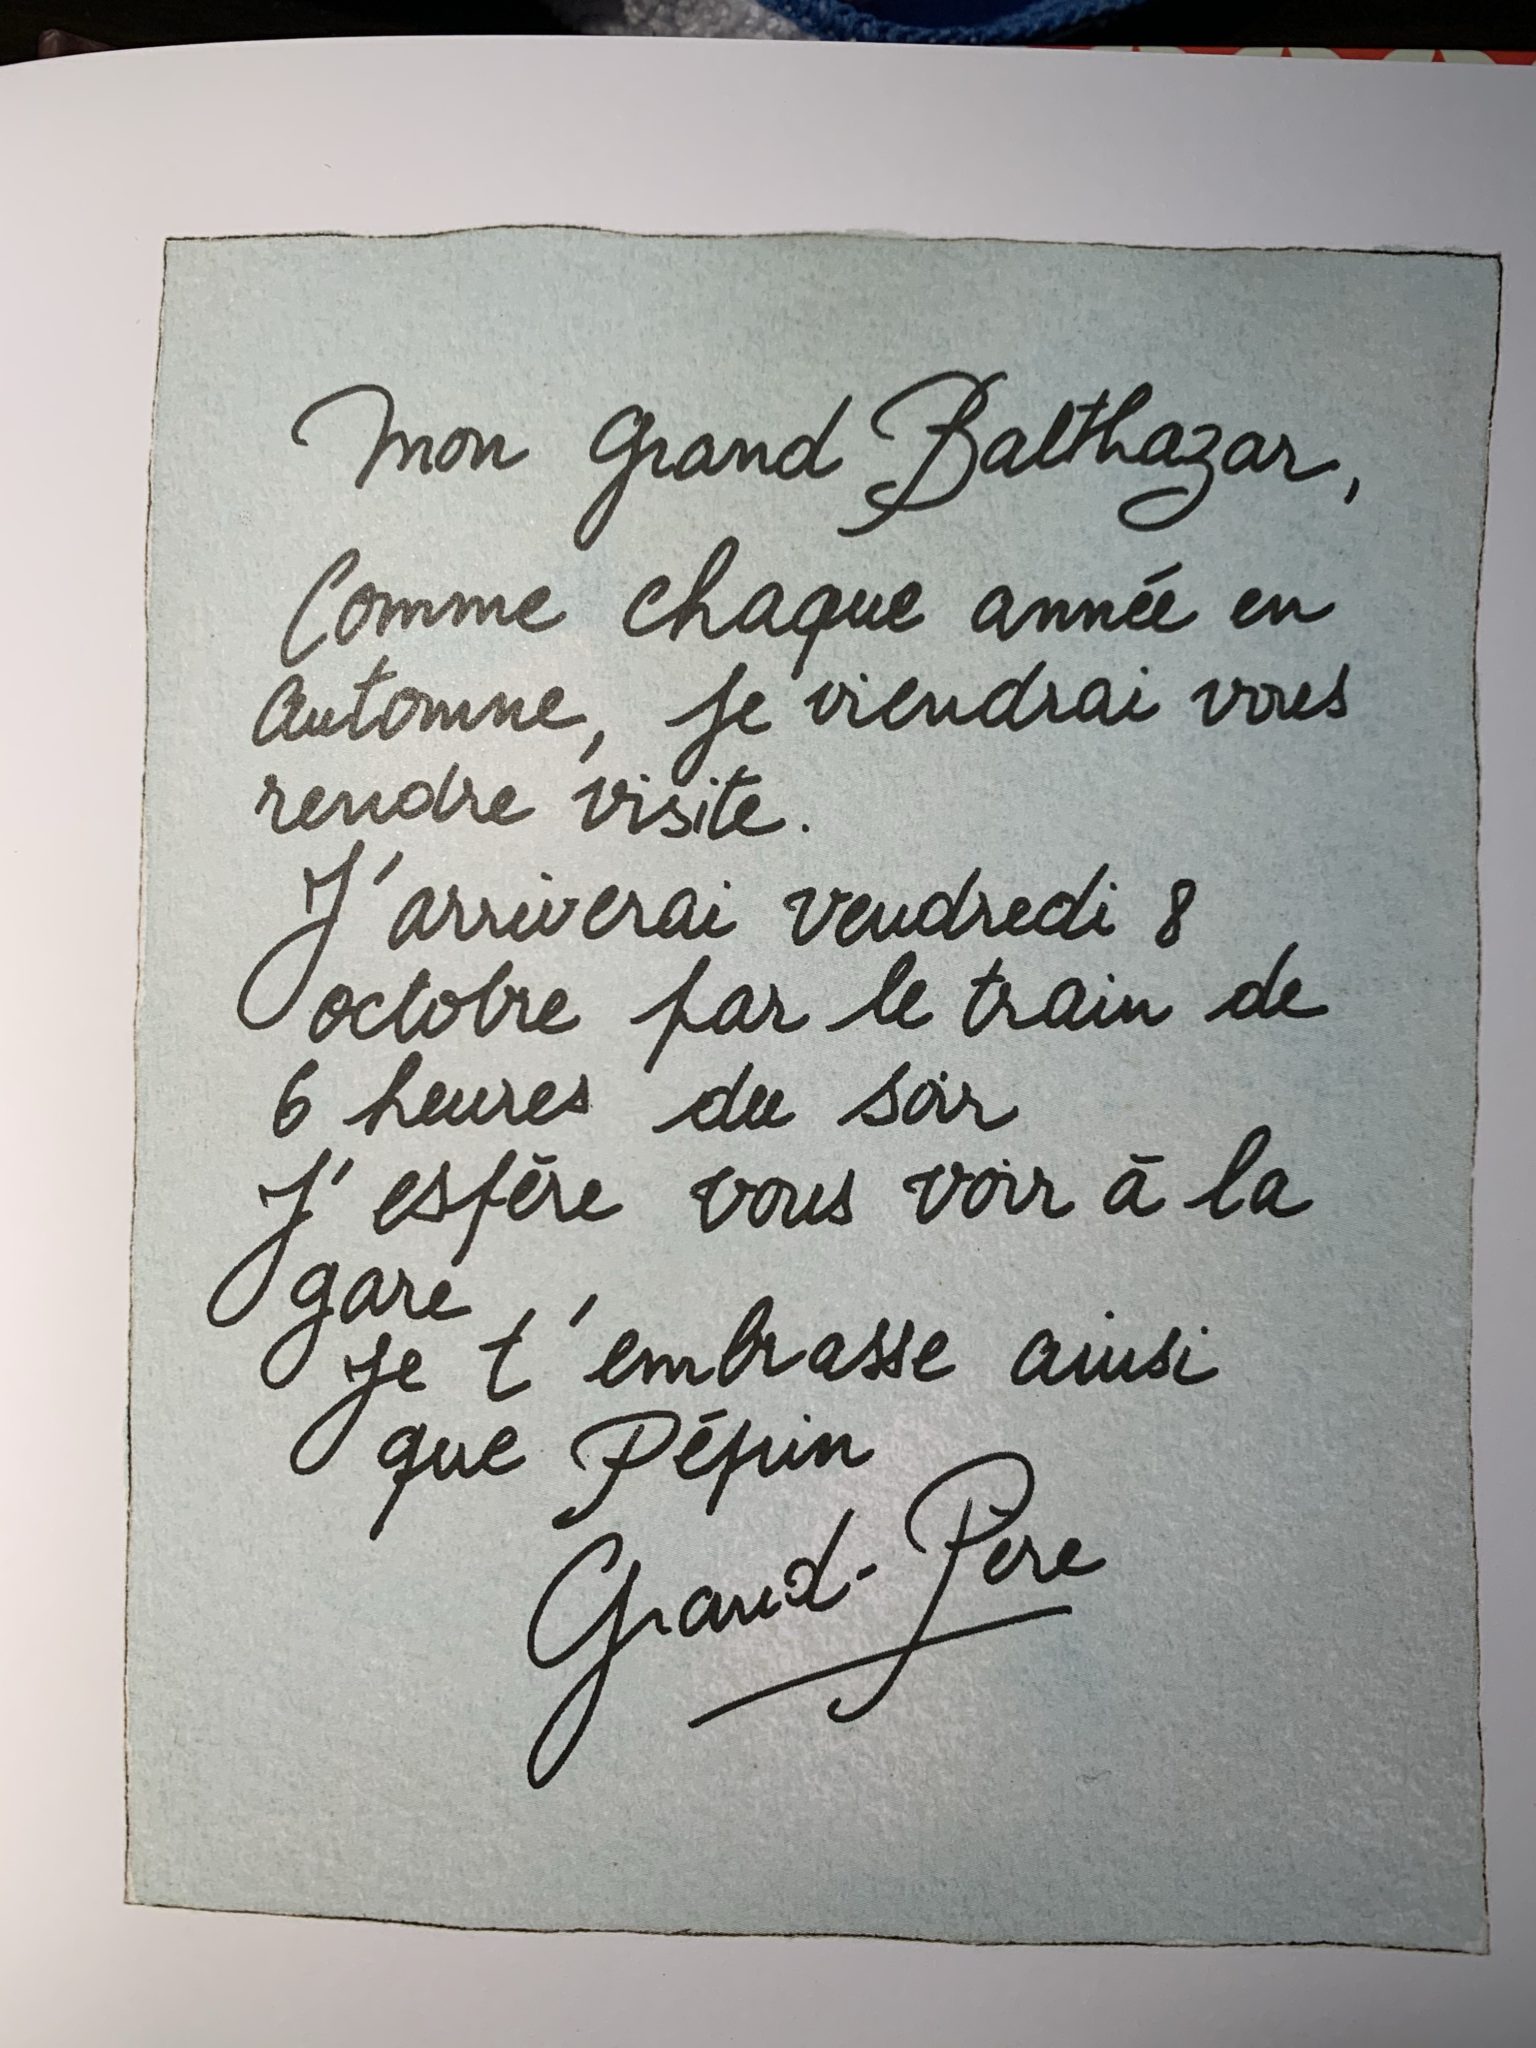 Mon grand Balthazar,
Comme chaque année en
automne, je viendrai vous
rendre visite.
J'arriverai vendredi 8
octobre par le train de
6 heures du soir
J'espère vous voir à la
gare
Je t'embrasse ainsi
que Pépin
Grand-Père